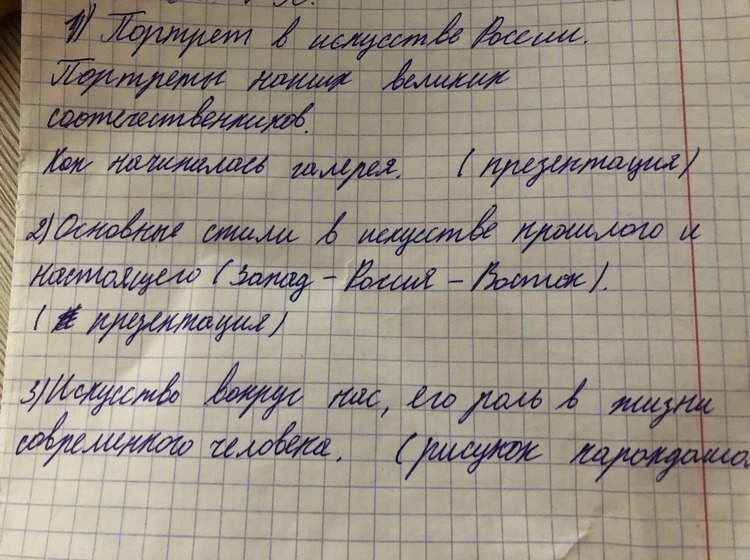 1) Портрет в искусстве России.
Портреты наших великих
соотечественников.
Как начиналась галерея. (презентация)
2) Основные стили в искусстве прошлого и
настоящего (Запад - Россия - Восток).
(презентация)
3) Искусство вокруг нас, его роль в жизни
современного человека. (рисунок карандаша